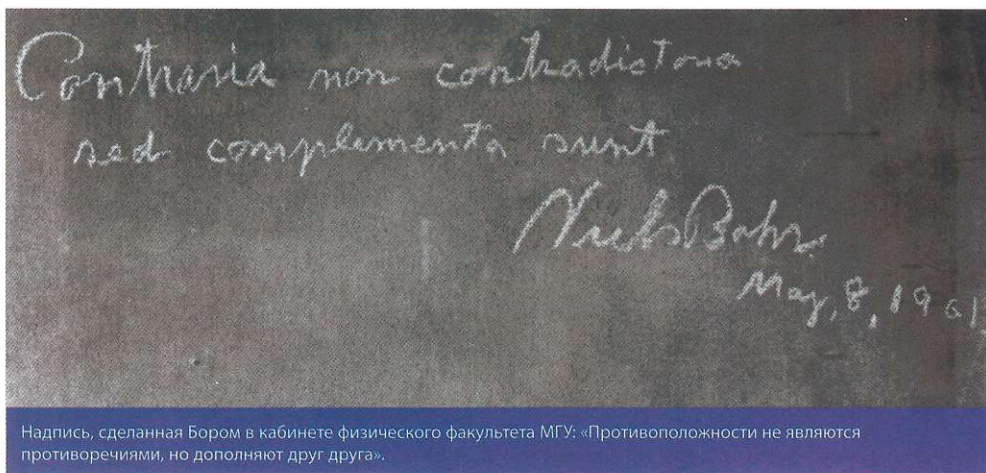 Contraria non contradictoria
sed complementa sunt
Niels Bohr.
May, 8, 1961
Надпись, сделанная Бором в кабинете физического факультета МГУ: «Противоположности не являются
противоречиями, но дополняют друг друга».